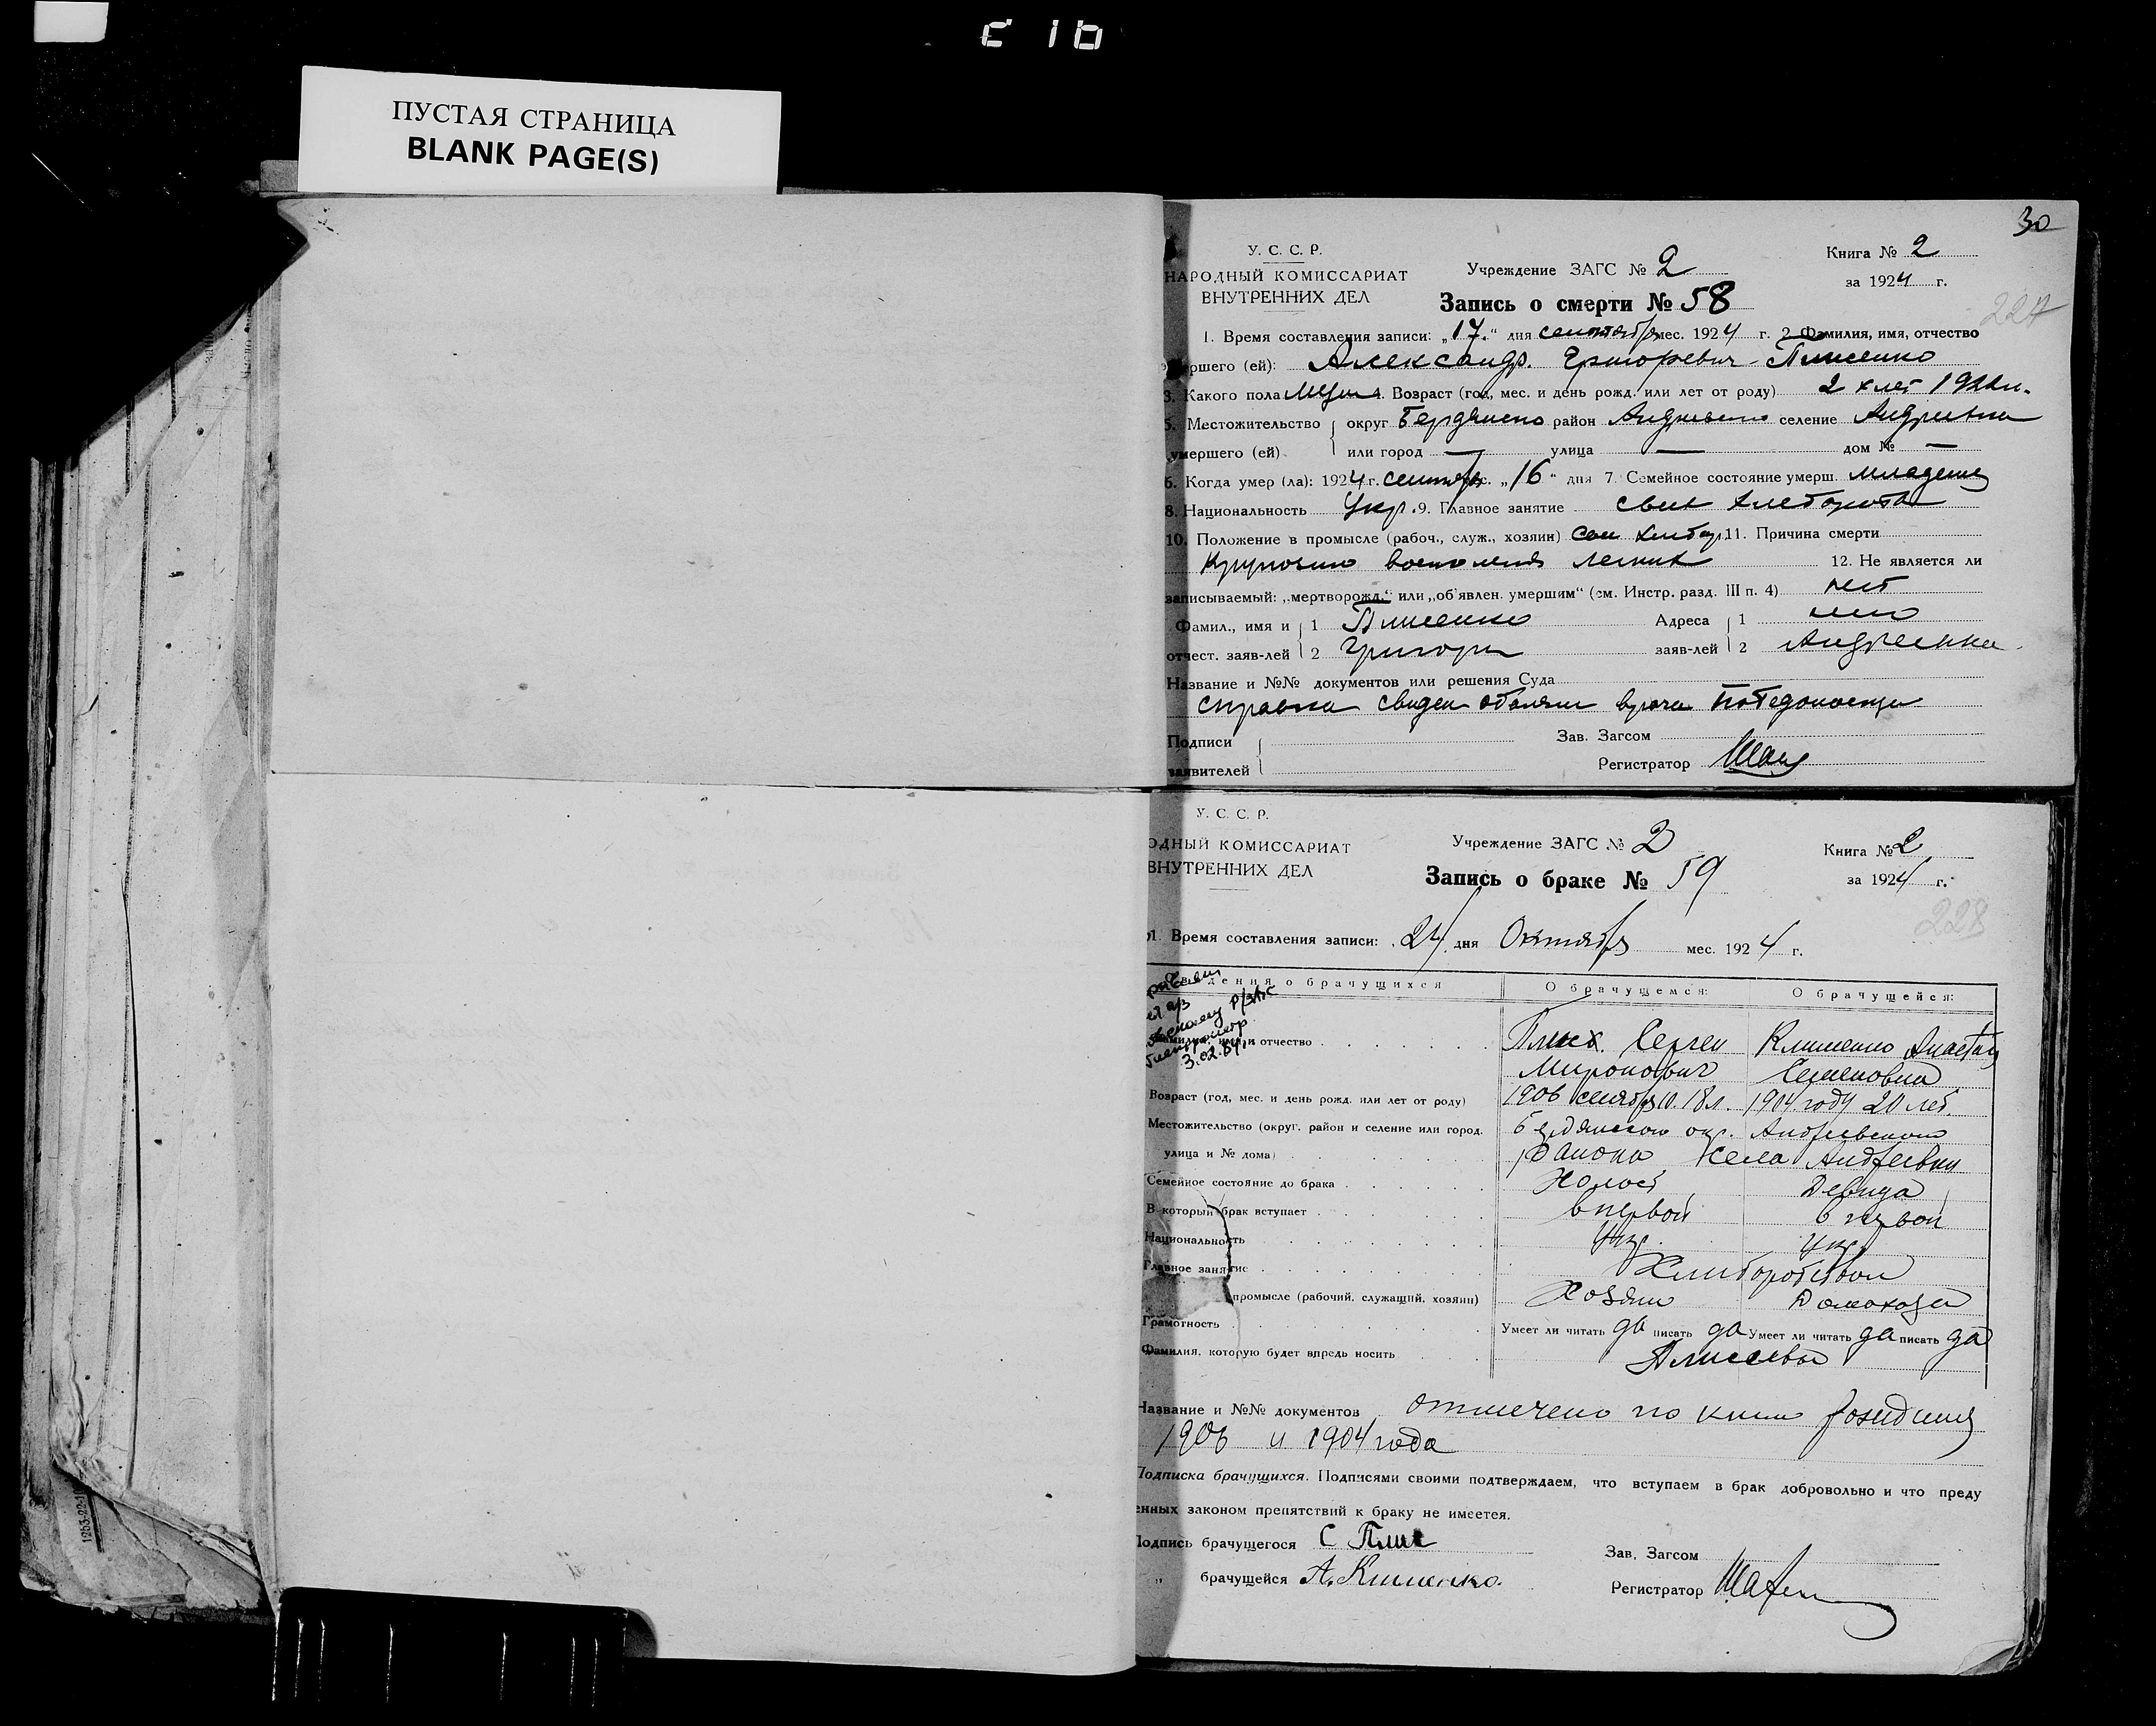 ПУСТАЯ СТРАНИЦА
BLANK PAGE(S)
30
У. С. С. Р.
НАРОДНЫЙ КОМИССАРИАТ
ВНУТРЕННИХ ДЕЛ
Учреждение ЗАГС № 2
Книга № 2
за 1924 г.
Запись о смерти № 58
227
1. Время составления записи: „17." дня сентября мес. 1924 г. 2. Фамилия, имя, отчество
умершего (ей): Александр
3. Какого пола Муж 4. Возраст (год, мес. и день рожд. или лет от роду) 2 х лет 1922
5. Местожительство округ Бердянско район Андреевско селение Андреевка
умершего (ей) или город — улица — дом № —
6. Когда умер (ла): 1924 г. сентября мес. „16" дня 7. Семейное состояние умерш. младенец
8. Национальность Укр. 9. Главное занятие сын хлебороба
10. Положение в промысле (рабоч., служ., хозяин) сын 11. Причина смерти
Крупозно легких 12. Не является ли
записываемый: „мертворожд." или „об'явлен. умершим" (см. Инстр. разд. III п. 4) нет
Фамил., имя и 1 Адреса 1 село
отчест. заяв-лей 2 Григорий заяв-лей 2 Андреевка
Название и №№ документов или решения Суда
справка врача
Подписи Зав. Загсом
заявителей Регистратор
У. С. С. Р.
ОДНЫЙ КОМИССАРИАТ
ВНУТРЕННИХ ДЕЛ
Учреждение ЗАГС № 2
Книга № 2
за 1924 г.
Запись о браке № 59
228
1. Время составления записи: 24 дня Октября мес. 1924 г.
дения о брачущихся О брачущемся: О брачущейся:
3.02.
Фамилия, имя и отчество Сергей Клименко Анастас
Миронович Семеновна
Возраст (год, мес. и день рожд. или лет от роду) 1906 сентября 18 л. 1904 году 20 лет.
Местожительство (округ, район и селение или город, Бердянского окр. Андреевского
улица и № дома) района села Андреевки
Семейное состояние до брака Холост Девица
В который брак вступает в первой в первой
Национальность Укр. Укр.
Главное занятие Хлеборобством
промысле (рабочий, служащий, хозяин) Хозяин Домохозя
Грамотность Умеет ли читать да писать да Умеет ли читать да писать да
Фамилия, которую будет впредь носить
Название и №№ документов отмечено по книге рождения
1906 и 1904 года
Подписка брачущихся. Подписями своими подтверждаем, что вступаем в брак добровольно и что преду
енных законом препятствий к браку не имеется.
Подпись брачущегося С Плис
Зав. Загсом
„ брачущейся А. Клименко.
Регистратор
1253-22-1